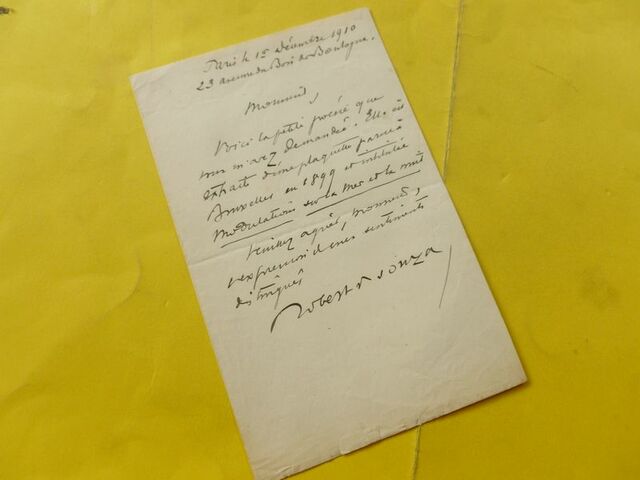 Paris le 15 Décembre 1910
23 avenue du Bois de Boulogne.
Monsieur,
Voici la petite poésie que
vous m'avez demandée. Elle est
extraite d'une plaquette parue à
Bruxelles en 1899 et intitulée
Modulations sur la Mer et la nuit
Veuillez agréer, Monsieur,
l'expression de mes sentiments
distingués
Robert de Souza